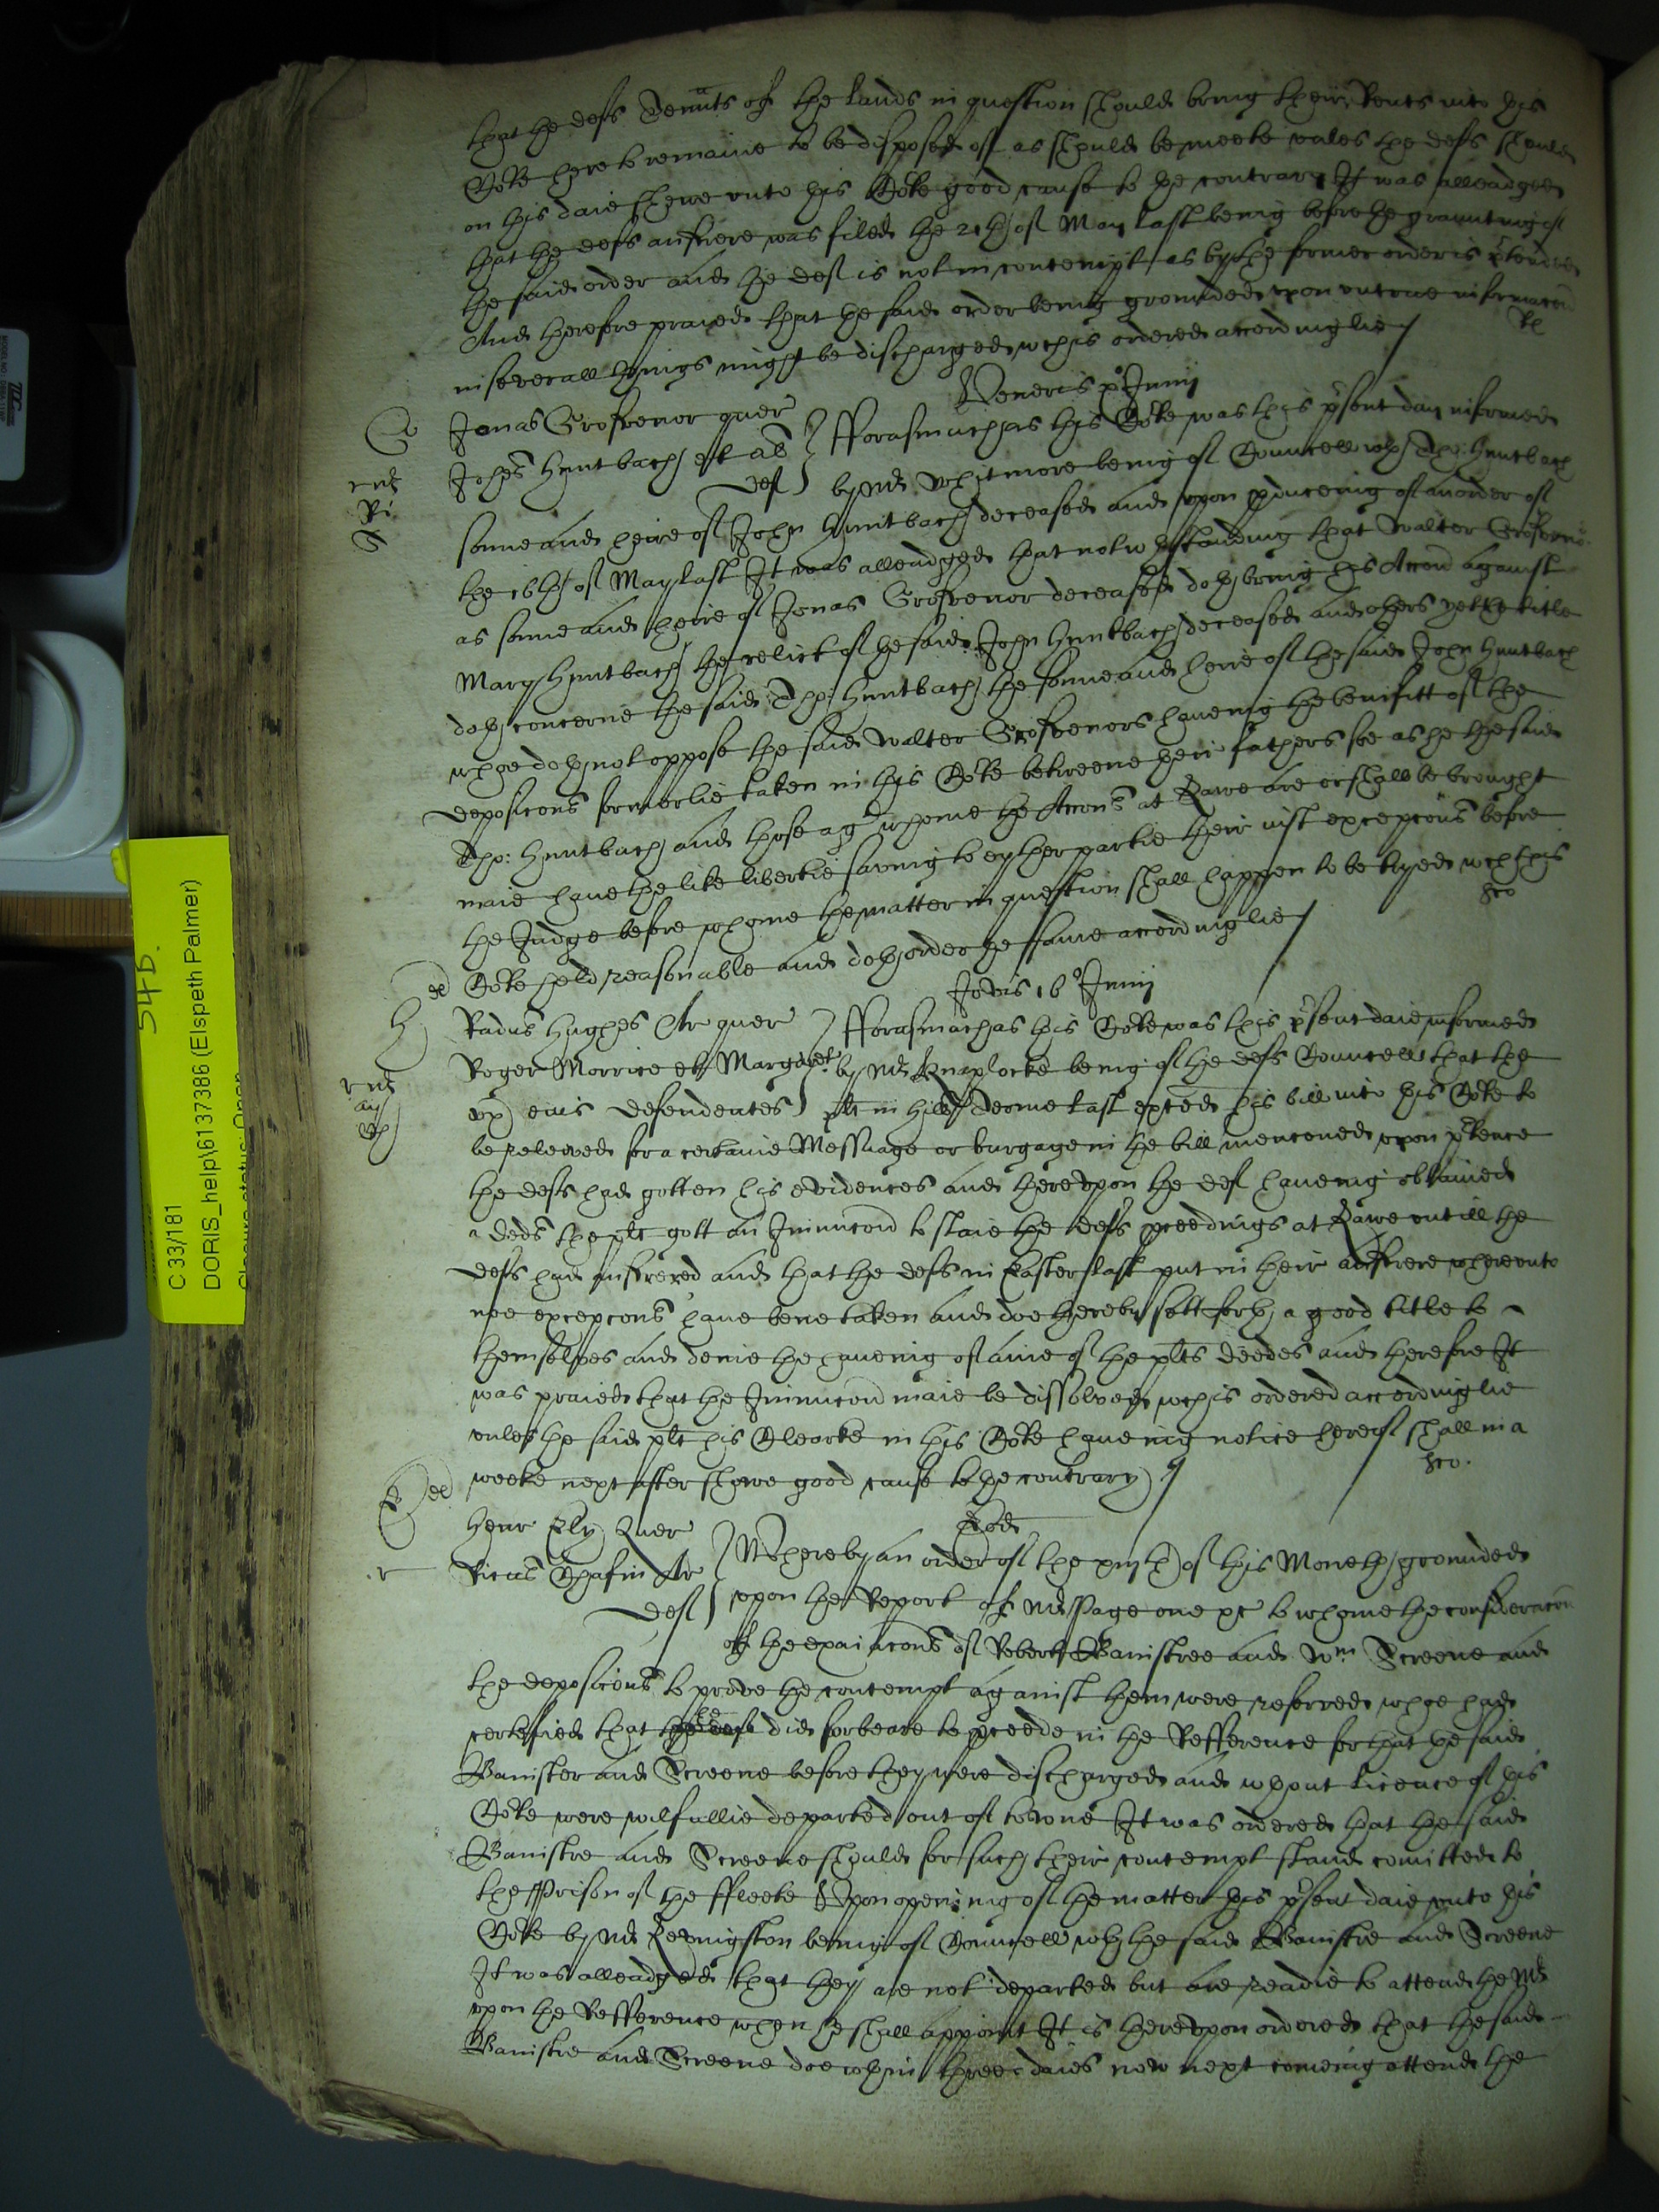 that the defs Tennts of the lands in question should bring their Rents into this
Corte there to remaine to be disposed of as should be meete vnles the defs should
on this daie shewe vnto this Corte good cause to the contrary It was alleadged
that the defs answere was filed the 21th of May last being before the graunting of
the said order and the def is not in contempt as by the former order is ptended
And therefore praied that the said order being grounded vpon vntrue informacon
in severall things might be discharged wch is ordered accordinglie
Veneris po Junij
Jonas Grosvenor quer
Johes Huntbach et al
def
Fforasmuch as this Corte was this psent day informed
by Mr Whitmore being of Councell wth Tho: Huntbach
sonne and heire of John Huntbach deceased and vpon pducing of an order of
the 16th of May last It was alleadged that notwthstanding that Walter Grosvenor
as sonne and heire of Jonas Grosvenor deceased doth bring his Accon against
Mary Huntbach the relict of the said John Huntbach deceased and others yet the title
doth concerne the said Tho: Huntbach the sonne and heire of the said John Huntbach
whoe doth not oppose the said Walter Grosvenors haueing the benifitt of the
deposicons formerlie taken in this Corte betweene their fathers soe as he the said
Tho: Huntbach and those agt whome the Accons at Lawe are or shall be brought
maie haue the like libertie saveing to eyther partie their iust excepcons before
the Judge before whome the matter in question shall happen to be tryed wch this
Corte held reasonable and doth order the same accordinglie
Jovis 16o Junij
Radus Hughes Ar quer
Roger Morrice et Margaret
vx eius defendentes
Fforasmuch as this Corte was this psent daie informed
by Mr Knaplocke being of the defs Councell that the
plt in Hill Terme last exhted his bill into this Corte to
be releived for a certaine Messuage or burgage in the bill mencioned vpon ptence
the defs had gotten his evidences and therevpon the def haueing obtained
a deds the plt gott an Iniunccon to staie the defs pceedings at Lawe vntill the
defs had answered and that the defs in Easter last put in their answere wherevnto
noe excepcons haue bene taken and doe thereby sett forth a good title to
themselves and denie the haueing of anie of the plts deedes and therefore It
was praied that the Iniunccon maie be dissolved wch is ordered accordinglie
vnles the said plt his Clearke in this Corte haueing notice hereof shall in a
weeke next after shewe good cause to the contrary
Eod
Henr Ely Quer
Ricus Chafin Ar
def
Whereby an order of the xiijth of this Moneth grounded
vpon the Report of Mr Page one &c to whome the consideracon
of the exaiacons of Robert Banistree and Wm Screene and
the deposicons to prove the contempt against them were referred whoe had
certefied that he did forbeare to pceede in the Refference for that the said
Banister and Screene before they were discharged and wthout licence of this
Corte were wilfullie departed out of towne It was ordered that the said
Banistre and Screene should for such their contempt stand comitted to
the Prison of the Ffleete Vpon opening of the matter this psent daie vnto this
Corte by Mr Levingston being of Councell wth the said Banistre and Screene
It was alleadged that they are not departed but are readie to attend the Mr
vpon the Refference when he shall appoint It is therevpon ordered that the said
Banistre and Screene doe wthin three daies now next comeing attend the
54B.
C 33/181
DORIS_help\6137386 (Elspeth Palmer)